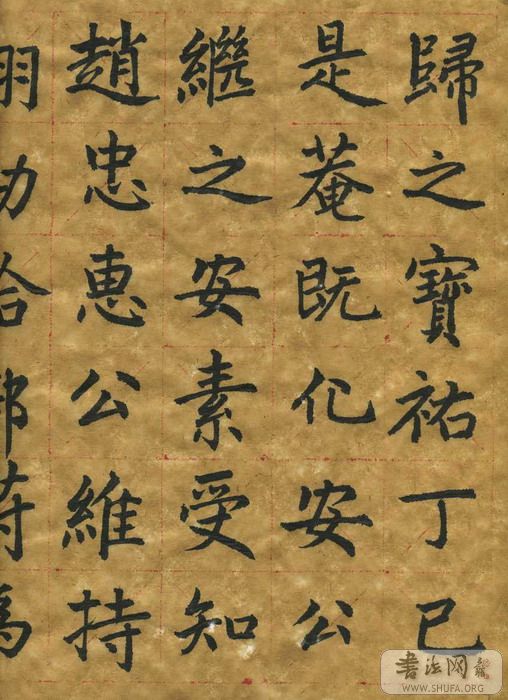 歸之寶祐丁巳
是菴既化安公
繼之安素受知
趙忠惠公維持
翊劦給部符爲
書法网
WWW.SHUFA.ORG